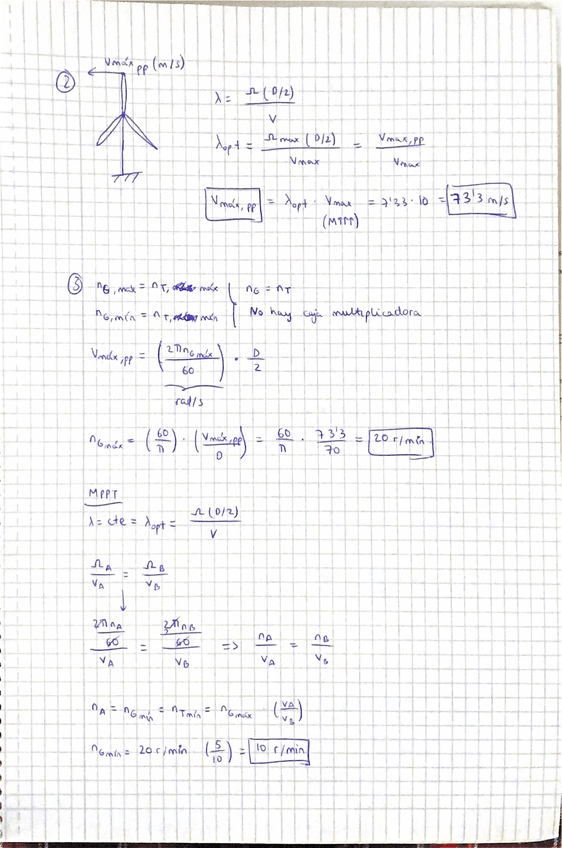 ②
Vmáx pp (m/s)
λ = Ω (D/2) / V
λopt = Ωmax (D/2) / Vmax = Vmax,pp / Vmax
Vmáx,pp = λopt · Vmax = 7'33 · 10 = 73'3 m/s
(MPPT)
③ nG,max = nT, máx } nG = nT
nG,mín = nT, mín } No hay caja multiplicadora
Vmáx,pp = (2π nG máx / 60) · D/2
rad/s
nG máx = (60/π) · (Vmáx,pp / D) = 60/π · 73'3/70 = 20 r/min
MPPT
λ = cte = λopt = Ω (D/2) / V
ΩA / VA = ΩB / VB
↓
(2π nA / 60) / VA = (2π nB / 60) / VB => nA / VA = nB / VB
nA = nG mín = nT mín = nG máx · (VA / VB)
nG mín = 20 r/min (5/10) = 10 r/min